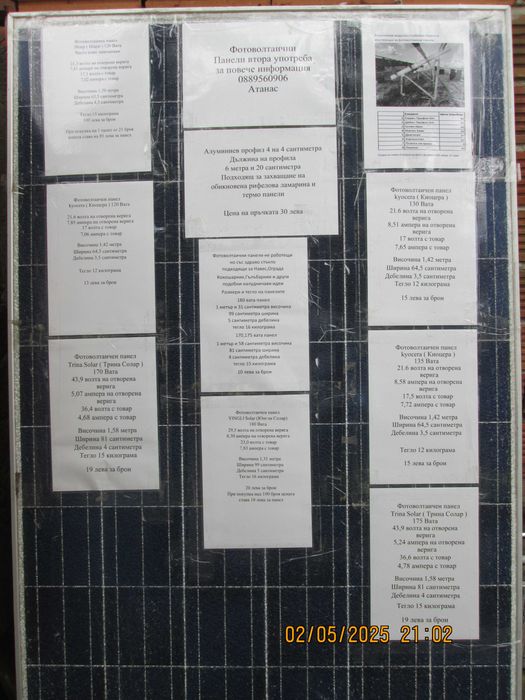 Фотоволтаичен панел
Sharp ( Шарп ) 120 Вата
21,3 волта на отворена верига
17,1 волта с товар
7,02 ампера с товар
Височина 1,50 метра
Ширина 66,5 сантиметра
Дебелина 4,5 сантиметра
Тегло 15 килограма
100 лева за брой
Фотоволтаичен панел
kyocera ( Киоцера ) 120 Вата
21,6 волта на отворена верига
7,85 ампера на отворена верига
17 волта с товар
7,06 ампера с товар
Височина 1,42 метра
Ширина 64,5 сантиметра
Дебелина 3,5 сантиметра
Тегло 12 килограма
13 лева за брой
Фотоволтаичен панел
Trina Solar ( Трина Солар )
170 Вата
43,9 волта на отворена
верига
5,07 ампера на отворена
верига
36,4 волта с товар
4,68 ампера с товар
Височина 1,58 метра
Ширина 81 сантиметра
Дебелина 4 сантиметра
Тегло 15 килограма
19 лева за брой
Фотоволтаични
Панели втора употреба
за повече информация
0889560906
Атанас
Алуминиев профил 4 на 4 сантиметра
Дължина на профила
6 метра и 20 сантиметра
Подходящ за захващане на
обикновена рифелова ламарина и
термо панели
Цена на пръчката 30 лева
Фотоволтаични панели не работещи
но със здраво стъкло
подходящи за Навес,Ограда
Кокошарник,Гълъбарник и други
подобни налудничави идеи
Размери и тегло на панелите
180 вата панел
1 метър и 31 сантиметра височина
99 сантиметра ширина
5 сантиметра дебелина
тегло 16 килограма
170,175 вата панел
1 метър и 58 сантиметра височина
81 сантиметра ширина
4 сантиметра дебелина
тегло 15 килограма
10 лева за брой
Фотоволтаичен панел
YINGLI Solar (Юнгли Солар)
180 Вата
29,5 волта на отворена верига
8,30 ампера на отворена верига
23,0 волта с товар
7,83 ампера с товар
Височина 1,31 метра
Ширина 99 сантиметра
Дебелина 5 сантиметра
Тегло 16 килограма
20 лева за брой
При покупка над 100 броя цената
става 19 лева за панел
Фотоволтаичен панел
kyocera ( Киоцера )
130 Вата
21.6 волта на отворена
верига
8,51 ампера на отворена
верига
17 волта с товар
7,65 ампера с товар
Височина 1,42 метра
Ширина 64,5 сантиметра
Дебелина 3,5 сантиметра
Тегло 12 килограма
15 лева за брой
Фотоволтаичен панел
kyocera ( Киоцера )
135 Вата
21.6 волта на отворена
верига
8,58 ампера на отворена
верига
17,5 волта с товар
7,72 ампера с товар
Височина 1,42 метра
Ширина 64,5 сантиметра
Дебелина 3,5 сантиметра
Тегло 12 килограма
15 лева за брой
Фотоволтаичен панел
Trina Solar ( Трина Солар )
175 Вата
43,9 волта на отворена
верига
5,24 ампера на отворена
верига
36,6 волта с товар
4,78 ампера с товар
Височина 1,58 метра
Ширина 81 сантиметра
Дебелина 4 сантиметра
Тегло 15 килограма
19 лева за брой
02/05/2025 21:02